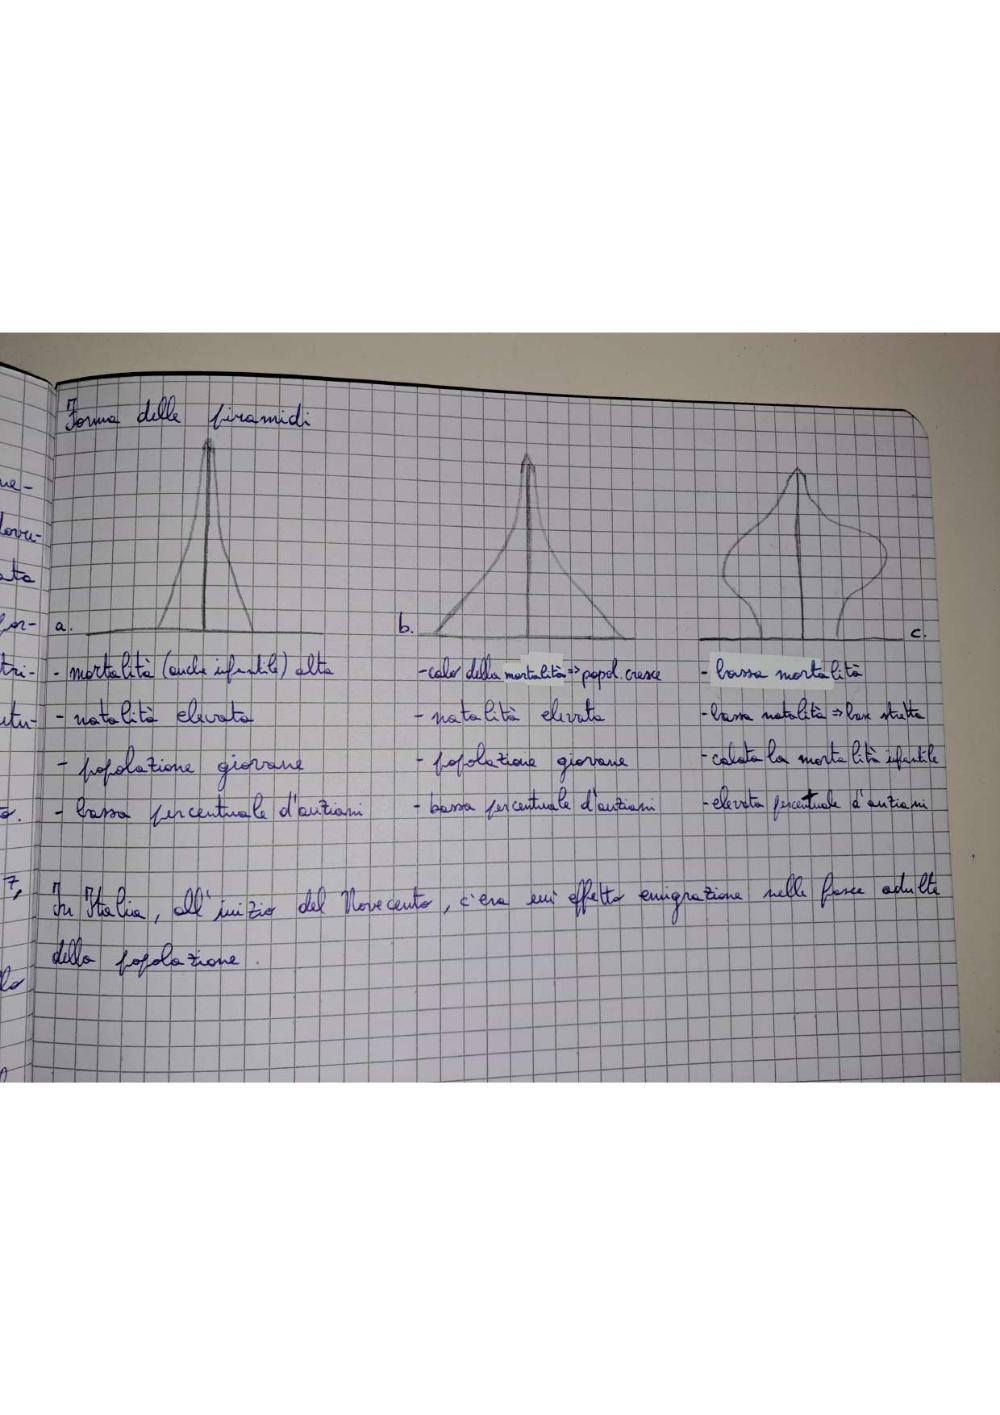 Forma delle piramidi
a.
b.
c.
- mortalità (anche infantile) alta
- natalità elevata
- popolazione giovane
- bassa percentuale d'anziani
- calo della mortalità => popol. cresce
- natalità elevata
- popolazione giovane
- bassa percentuale d'anziani
- bassa mortalità
- bassa natalità => base stretta
- calata la mortalità infantile
- elevata percentuale d'anziani
In Italia, all'inizio del Novecento, c'era un effetto emigrazione nelle fasce adulte
della popolazione.